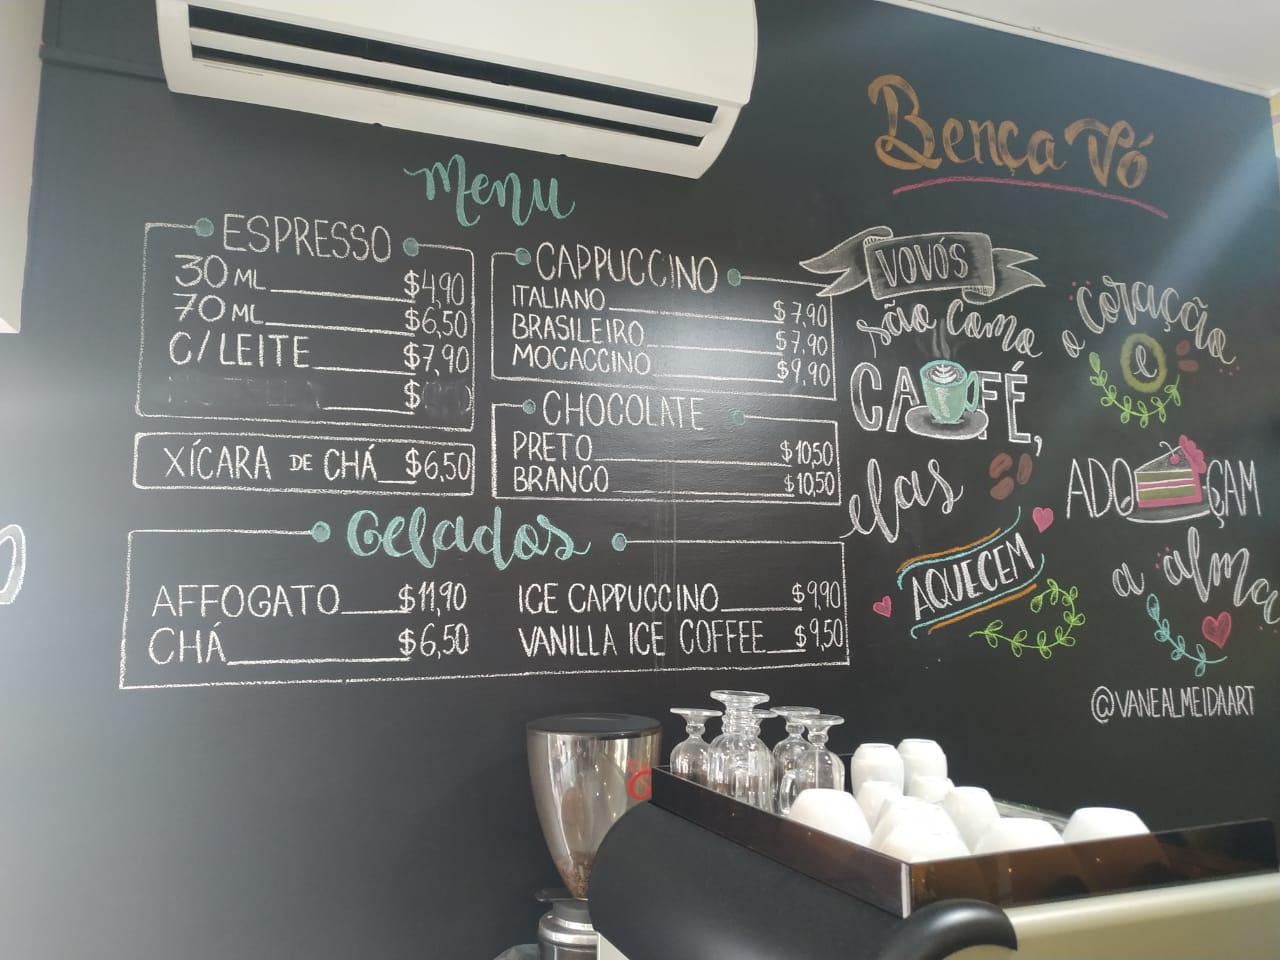 Menu
ESPRESSO
30 ML $4,90
70 ML $6,50
C/LEITE $7,90
$
XÍCARA DE CHÁ $6,50
CAPPUCCINO
ITALIANO $7,90
BRASILEIRO $7,90
MOCACCINO $9,90
CHOCOLATE
PRETO $10,50
BRANCO $10,50
Gelados
AFFOGATO $11,90
CHÁ $6,50
ICE CAPPUCCINO $9,90
VANILLA ICE COFFEE $9,50
Bença Vó
VOVÓS
são como
CAFÉ,
elas
AQUECEM
o coração
e
ADOÇAM
a alma
@VANEALMEIDAART